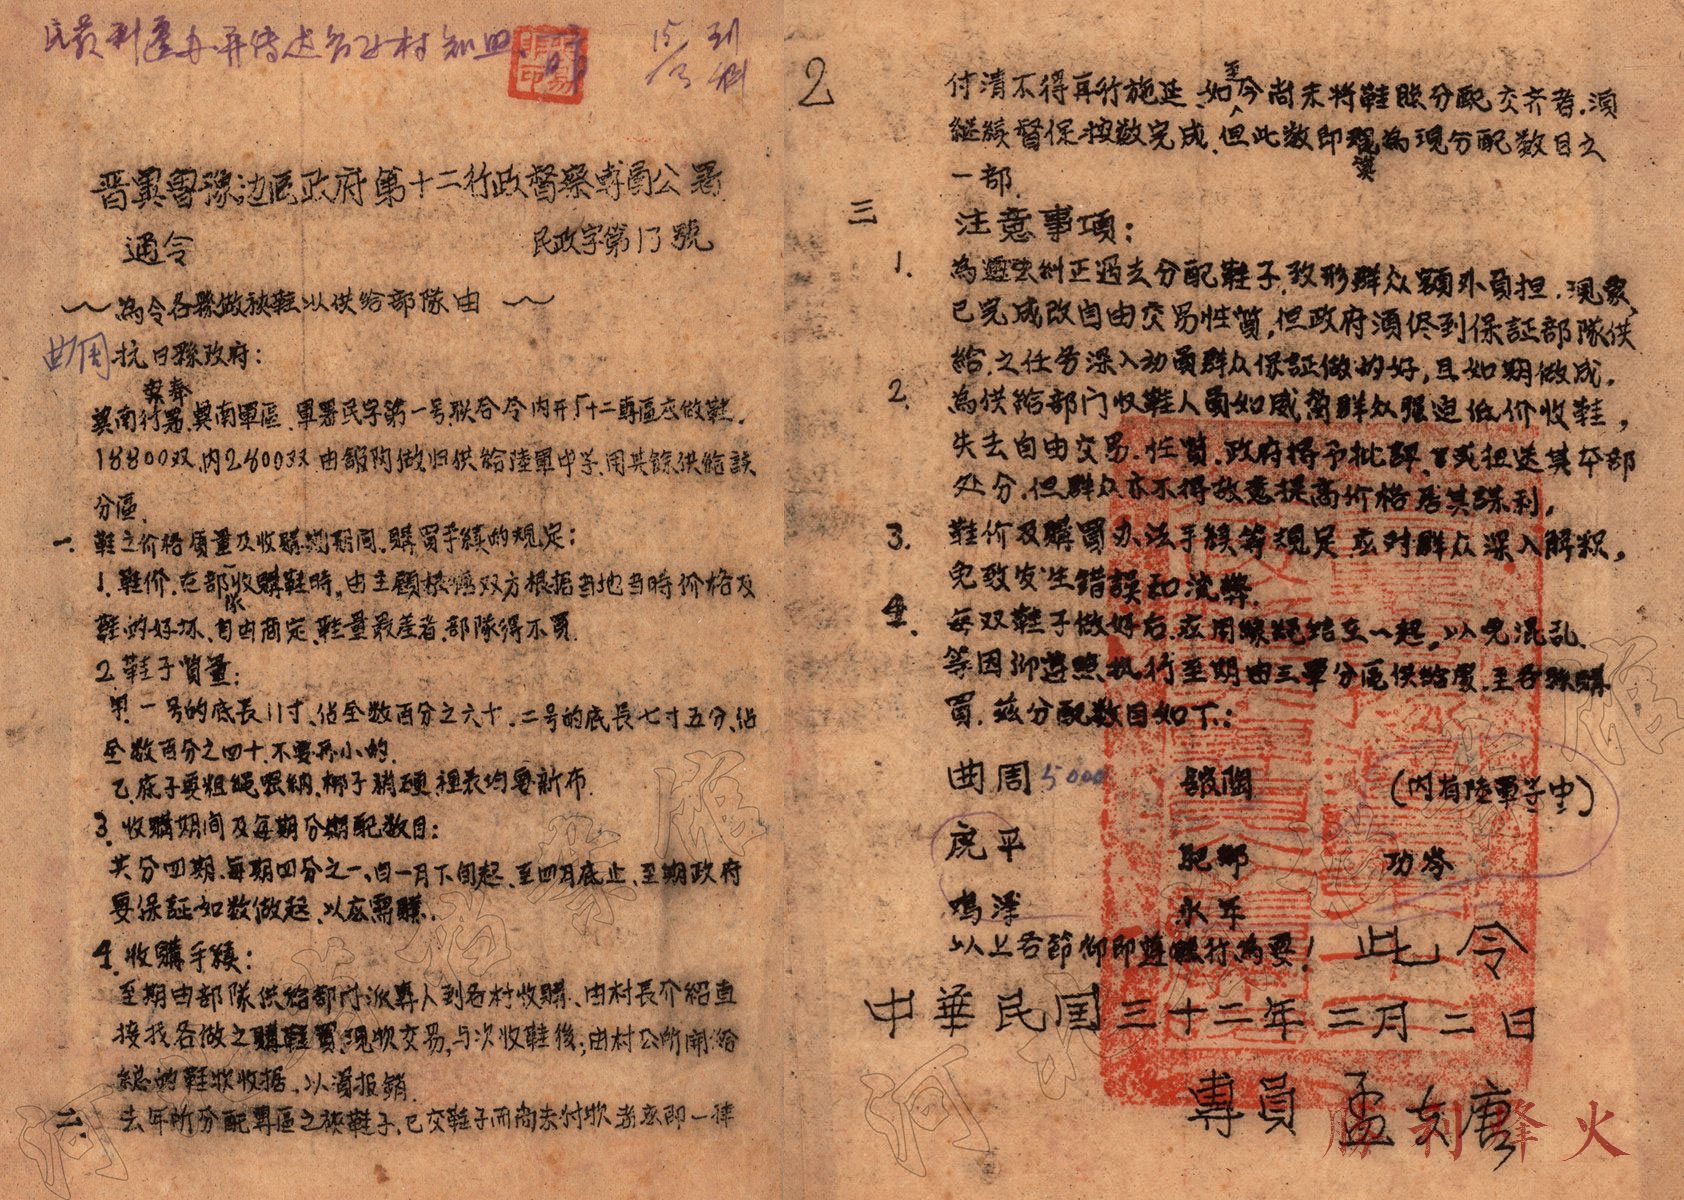 晋冀魯豫边區政府第十二行政督察專員公署
通令
民政字第13號
為令各縣做裌鞋以供給部隊由
曲周抗日縣政府：
案奉
冀南行署、冀南軍區、軍署民字第一号联合令内开「十二專區应做鞋
18800双、内2800双由館陶做归供給陸軍中学用其餘供給該
分區.
一、鞋之价格质量及收購期间、購買手續的規定：
1.鞋价.在部隊收購鞋時,由主顧根据双方根据当地当時价格及
鞋的好坏、自由商定、鞋量最差者、部隊得不買.
2.鞋子質量：
甲.一号的底長八寸、佔全数百分之六十.二号的底長七寸五分、佔
全数百分之四十.不要再小的.
乙.底子要粗繩密納、梆子稍硬,裡表均要新布.
3.收購期间及每期分配数目：
共分四期、每期四分之一、自一月下旬起、至四月底止、至期政府
要保証如数做起、以应需購.
4.收購手續：
至期由部隊供給部門派專人到各村收購、由村長介紹直
接找各做之購鞋買現款交易,与次收鞋後;由村公所開給
總的鞋款收据、以資报銷.
二、去年所分配專區之裌鞋子、已交鞋子而尚未付款者应即一律
2
付清不得再行拖延、如至今尚未將鞋照分配交齐者.須
継續督促按数完成.但此数即算為現分配数目之
一部.
三
注意事項：
1.為糾正过去分配鞋子.致形群众額外負担.現象
已完成改自由交易性質,但政府須侭到保証部隊供
給.之任务深入动員群众保証做的好,且如期做成.
2.為供給部门收鞋人員如威脅群众强迫低价收鞋,
失去自由交易.性質.政府得予批評.或扭送其本部
处分.但群众亦不得故意提高价格居其跡利.
3.鞋价及購買办法手續等規定应对群众深入解釈,
免致发生錯誤和流弊.
4.每双鞋子做好后.应用線繩結在一起,以免混乱
等因仰遵照执行至期由三軍分區供給處.至各縣購
買.茲分配数目如下：
曲周5000 館陶 (内有陸軍学中)
肥鄉
鸡泽 永年
以上各節仰即遵照执行為要! 此令
中華民国三十二年三月二日
專員 孟夫唐
胜利烽火